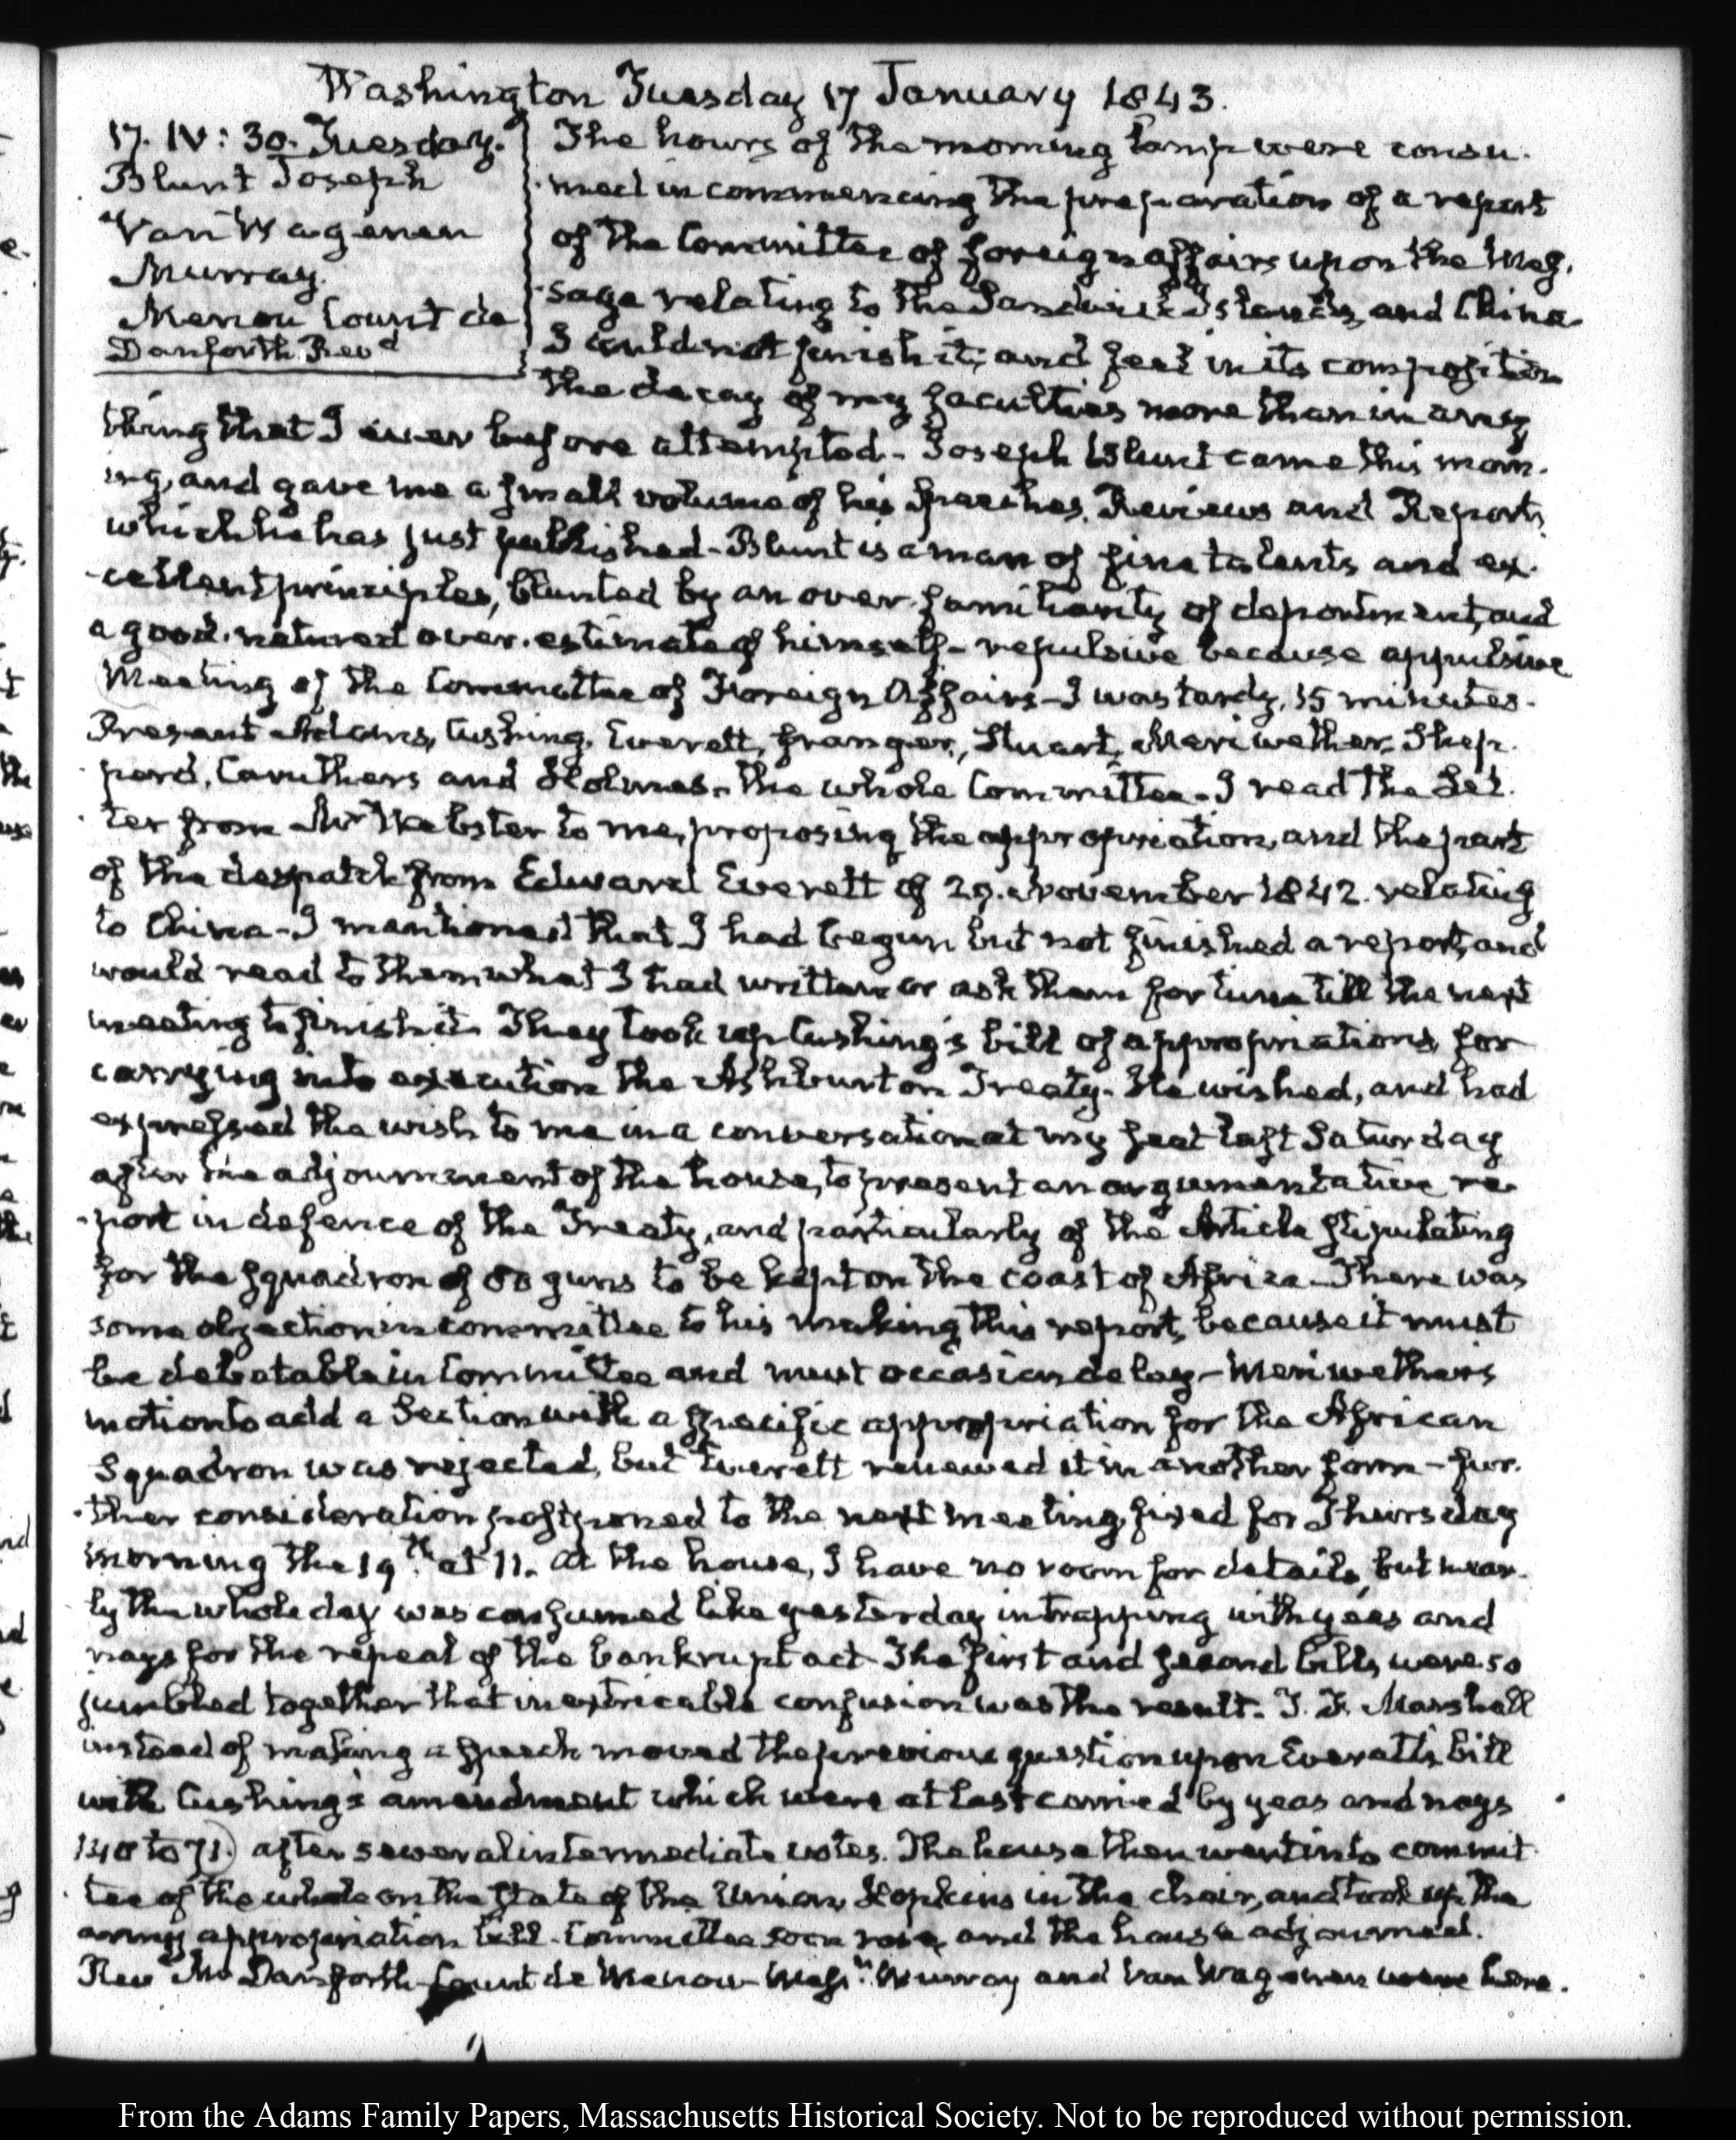 Washington Tuesday 17 January 1843.
17. IV: 30. Tuesday.
Blunt Joseph
Van Wagenen
Murray.
Menou Count de
Danforth Revd
The hours of the morning lamp were consu-
med in commencing the preparation of a report
of the Committee of foreign affairs upon the Mes-
sage relating to the Sandwich Islands, and China
I could not finish it; and feel in its composition
the decay of my faculties more than in any
thing that I ever before attempted- Joseph Blunt came this morn-
ing, and gave me a small volume of his Speeches, Reviews and Reports,
which he has just published- Blunt is a man of fine talents and ex-
cellent principles, blunted by an over-familiarity of deportment, and
a good-natured over-estimate of himself- repulsive because appulsive
Meeting of the Committee of Foreign Affairs- I was tardy, 15 minutes-
Present Adams, Cushing, Everett, Granger, Stuart, Meriwether, Shep-
perd, Caruthers and Holmes- The whole Committee- I read the Let-
ter from Mr Webster to me, proposing the appropriation, and the part
of the despatch from Edward Everett of 29. November 1842. relating
to China- I mentioned that I had begun but not finished a report, and
would read to them what I had written or ask them for time till the next
meeting to finish it. They took up Cushing's bill of appropriations for
carrying into execution the Ashburton Treaty. He wished, and had
expressed the wish to me in a conversation at my seat last Saturday
after the adjournment of the house, to present an argumentative re-
port in defence of the Treaty, and particularly of the Article stipulating
for the squadron of 80 guns to be kept on the coast of Africa- There was
some objection in committee to his making this report, because it must
be debatable in Committee and must occasion delay- Meriwether's
motion to add a Section with a specific appropriation for the African
Squadron was rejected, but Everett renewed it in another form- fur-
ther consideration postponed to the next meeting, fixed for Thursday
morning the 19th. at 11. At the house, I have no room for details, but near-
ly the whole day was consumed like yesterday in trapping with yeas and
nays for the repeal of the bankrupt act- The first and second bills, were so
jumbled together that inextricable confusion was the result. T. F. Marshall
instead of making a speech moved the previous question upon Everett's bill
with Cushing's amendment which were at last carried by yeas and nays
140 to 71.) after several intermediate votes. The house then went into commit-
tee of the whole on the state of the Union, Hopkins in the chair, and took up the
army appropriation bill. Committee soon rose, and the house adjourned.
Revd Mr Danforth- Count de Menou- Messrs Murray and Van Wagenen were here.
From the Adams Family Papers, Massachusetts Historical Society. Not to be reproduced without permission.